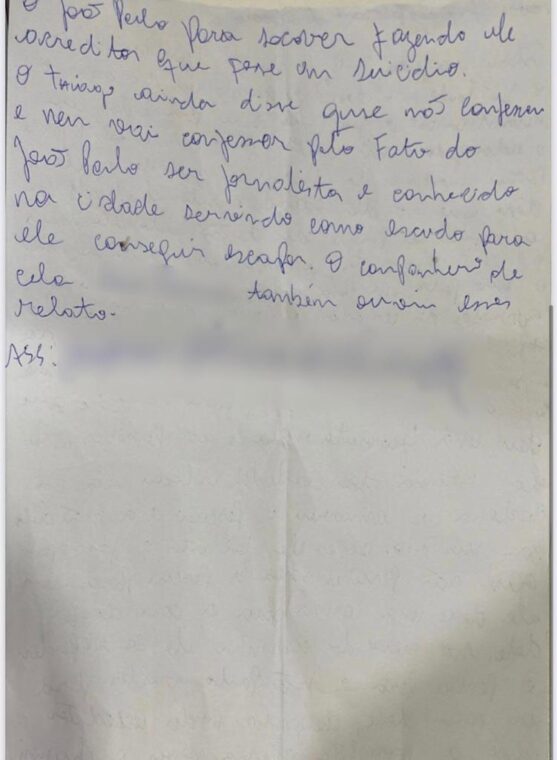 O João Paulo para socorrer fazendo ele
acreditar que fosse um suicídio.
O Thiago ainda disse que não confessou
e nem vai confessar pelo Fato do
João Paulo ser jornalista e conhecido
na cidade servindo como escudo para
ele conseguir escapar. O companheiro de
cela também ouviu esses
relato.
ASS: